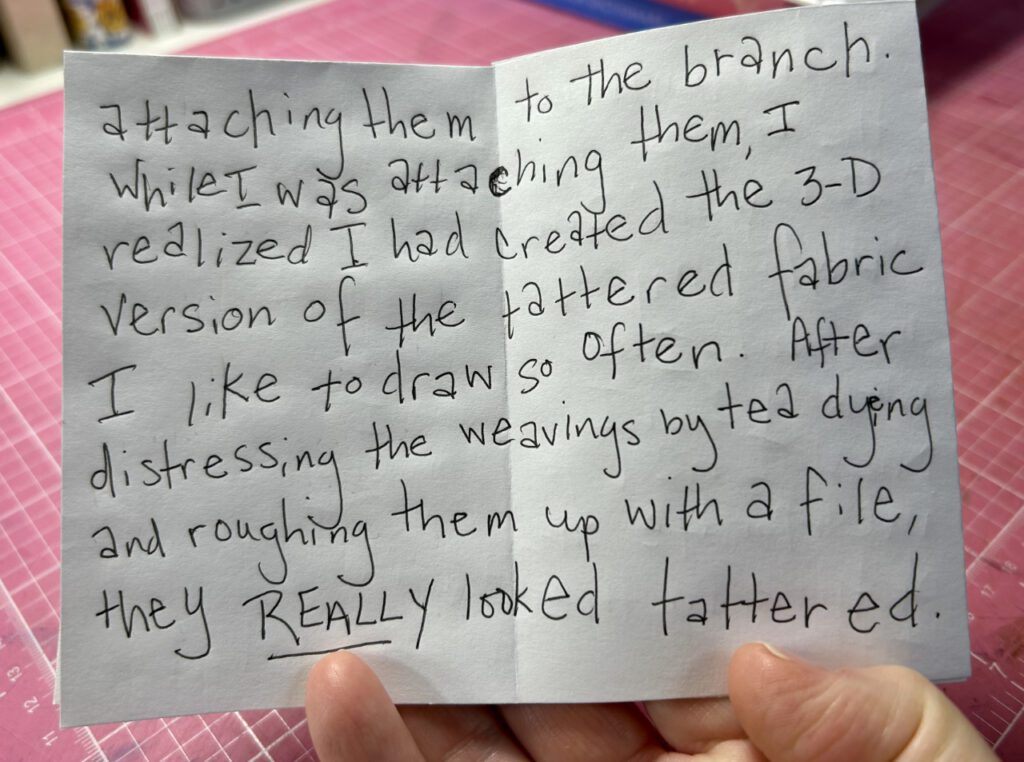 attaching them to the branch.
While I was attaching them, I
realized I had created the 3-D
version of the tattered fabric
I like to draw so often. After
distressing the weavings by tea dying
and roughing them up with a file,
they REALLY looked tattered.